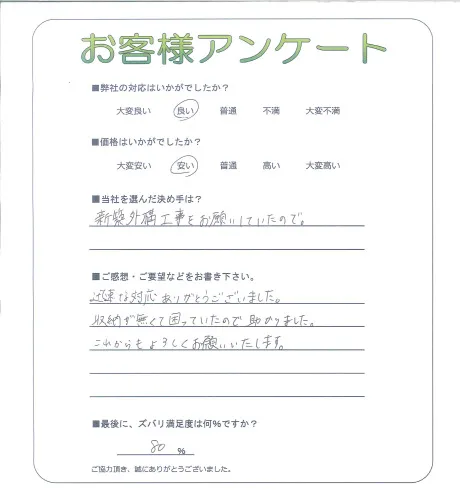 お客様アンケート
■弊社の対応はいかがでしたか？
大変良い 良い 普通 不満 大変不満
■価格はいかがでしたか？
大変安い 安い 普通 高い 大変高い
■当社を選んだ決め手は？
新築外構工事をお願いしていたので。
■ご感想・ご要望などをお書き下さい。
迅速な対応ありがとうございました。
収納が無くて困っていたので助かりました。
これからもよろしくお願いいたします。
■最後に、ズバリ満足度は何%ですか？
80 %
ご協力頂き、誠にありがとうございました。